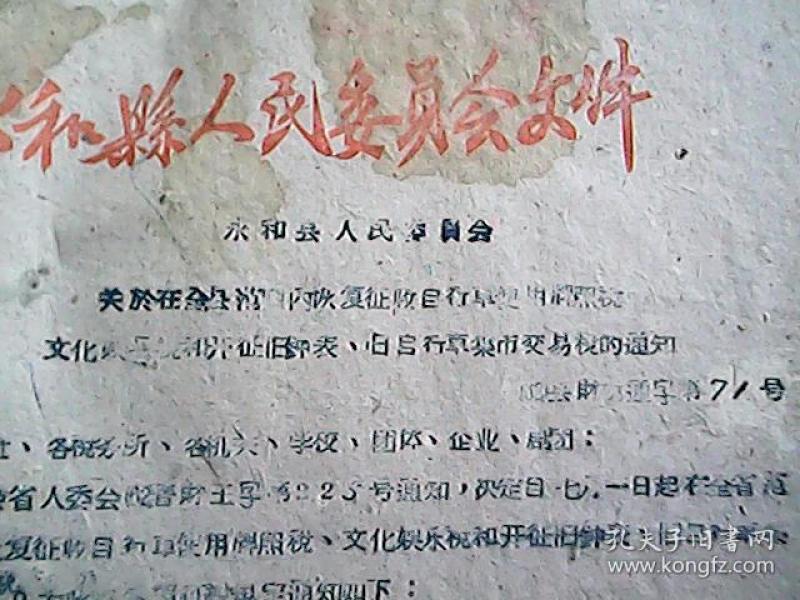 和縣人民委員会文件
永和县人民委員会
关於在全县范围内恢复征收自行車使用牌照税
文化娱乐税和开征旧钟表、旧自行車集市交易税的通知
财 通字第71号
社、各税务所、各机关、学校、团体、企业、剧团：
省人委会 晋财王字第225号通知，决定自七、一日起在全省范
复征收自行車使用牌照税、文化娱乐税和开征旧钟表、旧
通知如下：
孔夫子旧書网
www.kongfz.com